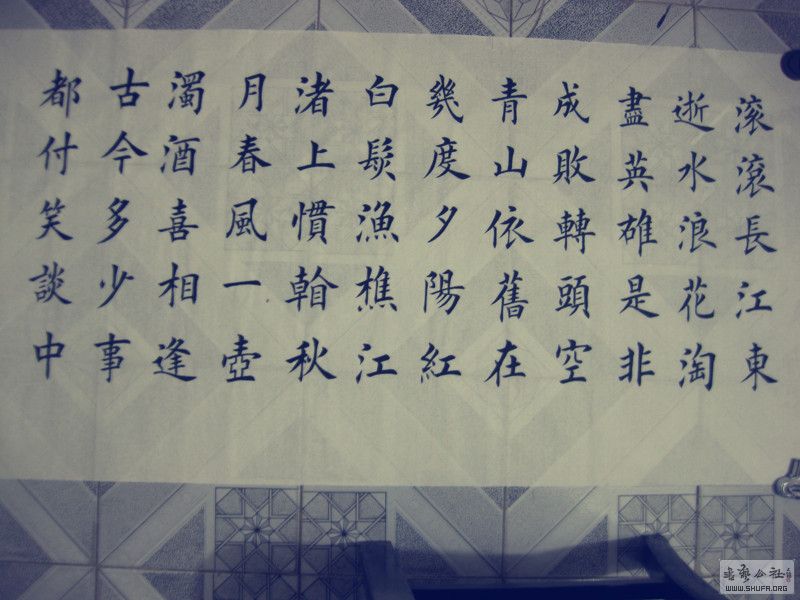 滚滚長江東
逝水浪花淘
盡英雄是非
成敗轉頭空
青山依舊在
幾度夕陽紅
白髮漁樵江
渚上慣翰秋
月春風一壺
濁酒喜相逢
古今多少事
都付笑談中
公社
WWW.SHUFA.ORG